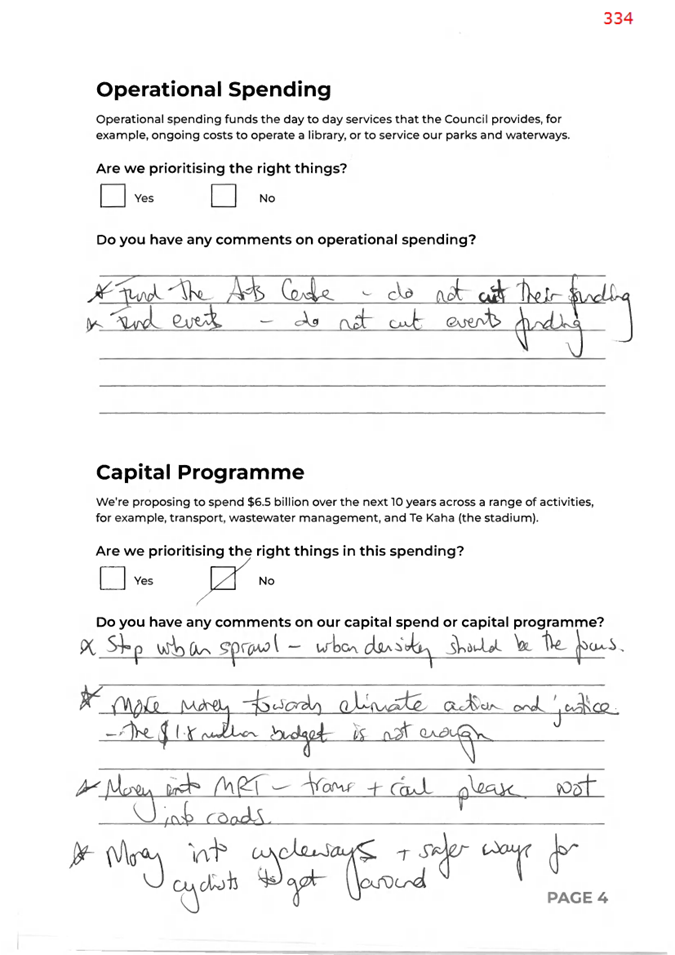 334
Operational Spending
Operational spending funds the day to day services that the Council provides, for
example, ongoing costs to operate a library, or to service our parks and waterways.
Are we prioritising the right things?
Yes No
Do you have any comments on operational spending?
* Fund The Arts Centre - do not cut their funding
* Fund events - do not cut events funding
Capital Programme
We're proposing to spend $6.5 billion over the next 10 years across a range of activities,
for example, transport, wastewater management, and Te Kaha (the stadium).
Are we prioritising the right things in this spending?
Yes No
Do you have any comments on our capital spend or capital programme?
* Stop urban sprawl - urban density should be the focus.
* More money towards climate action and justice.
- The $1.8 million budget is not enough
* Money into MRT - trams + rail please. Not
into roads.
* Money into cycleways + safer ways for
cyclists to get around
PAGE 4